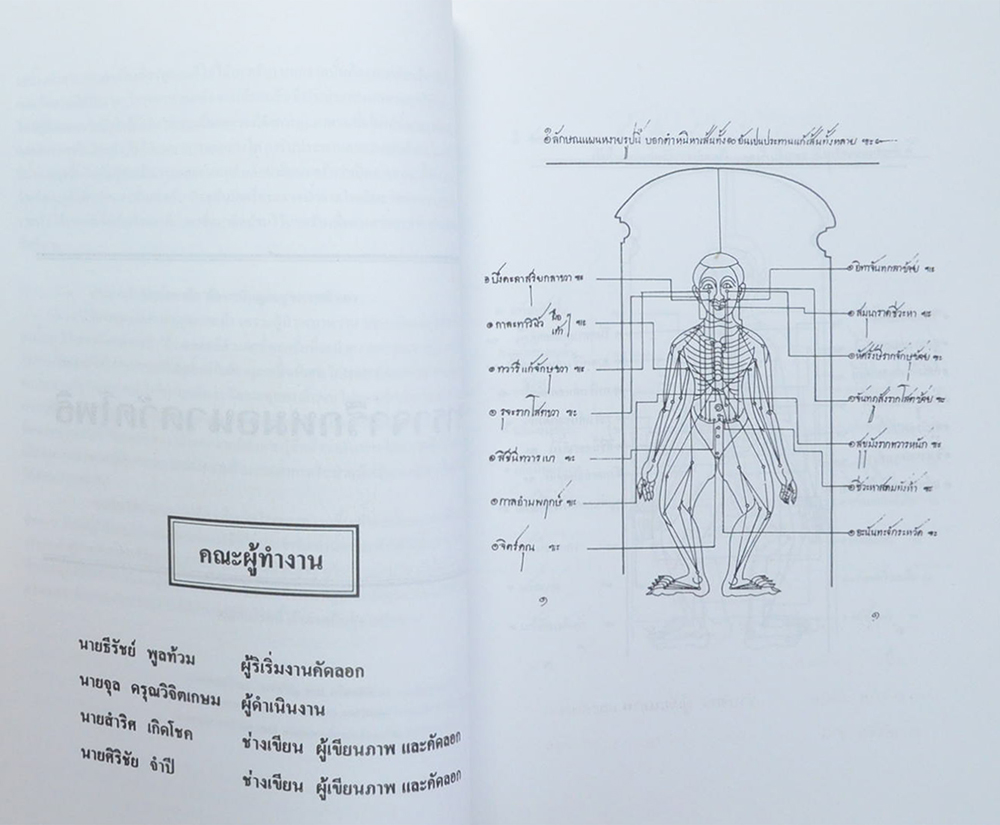 คณะผู้ทำงาน
นายธีรัชย์ พูลท้วม ผู้ริเริ่มงานคัดลอก
นายจุล ดรุณวิจิตเกษม ผู้ดำเนินงาน
นายสำริศ เกิดโชค ช่างเขียน ผู้เขียนภาพ และคัดลอก
นายศิริชัย จำปี ช่างเขียน ผู้เขียนภาพ และคัดลอก
ลักษณแผนหงายรูปนี้ บอกตำหนิหาเส้นทั้ง๑๐ อันเปนประทานแก่เส้นทั้งหลาย ฯะ
๏ ปิงคะลาสริยกลาขวา ฯะ
๏ กาละทารี
๏ ทวารี แก้จักษุขวา ฯะ
๏ รุจะรากโสตขวา ฯะ
๏ สิขินีทวารเบา ฯะ
๏ กาลอำมพฤกษ์ ฯะ
๏ จิตร์คุณ ฯะ
๑
๏ อิทาจันทกลาซ้าย ฯะ
๏ สมุนาราตชิวะหา ฯะ
๏ หัศรังษีรากจักษุซ้าย ฯะ
๏ จันทภูสังรากโสตซ้าย ฯะ
๏ สุขุมังรากทวารหนัก ฯะ
๏ ชิวะหาสดมทังห้า ฯะ
๏ อะนันทะจักระหวัด ฯะ
๑